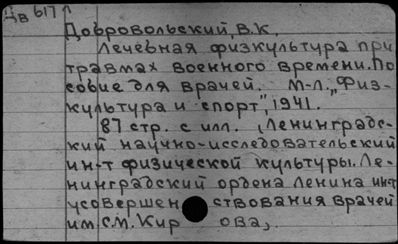 Цв 617
Добровольский, В.К.
Лечебная физкультура при
травмах военного времени. По
собие для врачей. М-Л., "Физ-
культура и спорт", 1941.
87 стр. с илл. (Ленинградс-
кий научно-исследовательский
ин-т физической культуры. Ле-
нинградский ордена Ленина ин-т
усовершен ствования врачей
им. С.М. Кир ова),